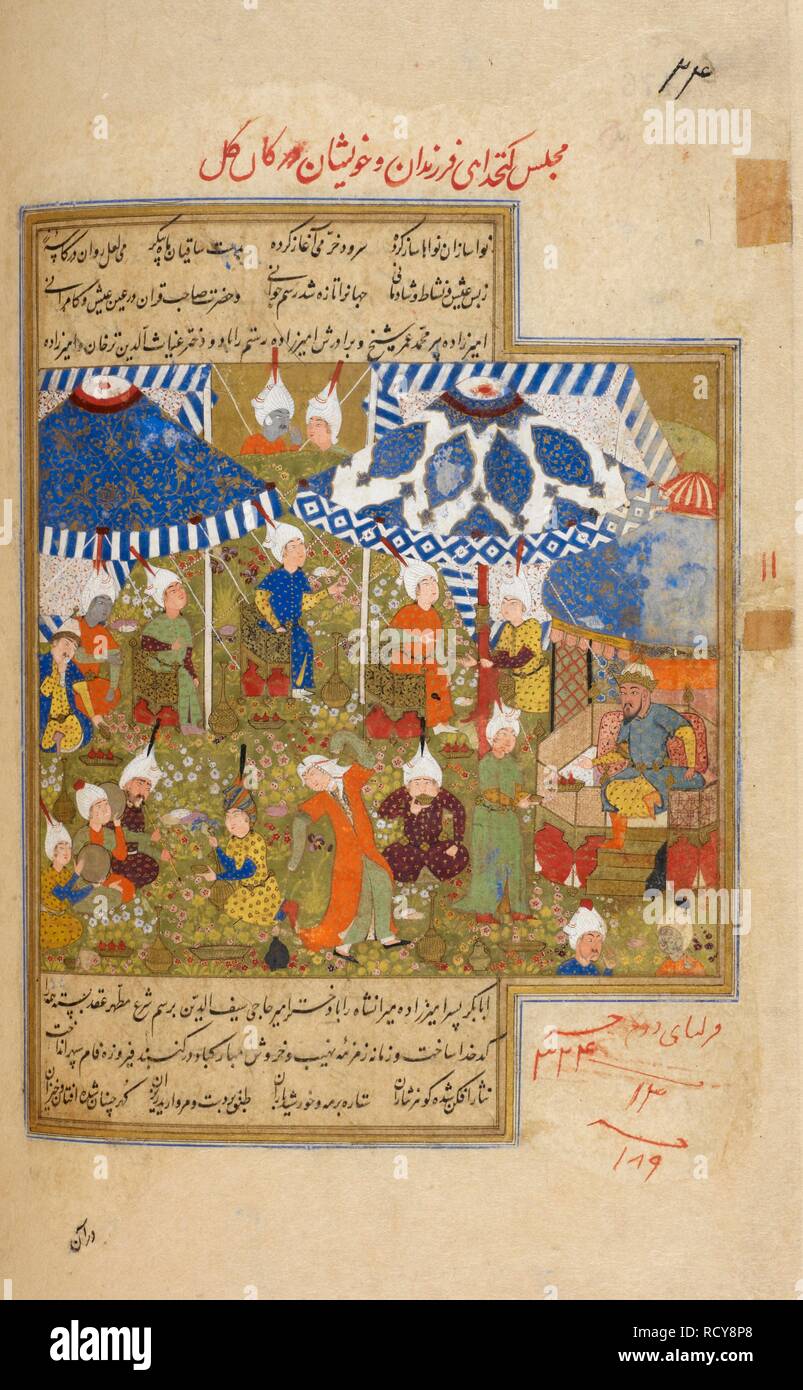 ۳۴
مجلس کتخدایی فرزندان و خویشان در کان گل
نوا سازان نواها ساز کرده سرود خرمی آغاز کرده بدست ساقیان ماه پیکر می لعل روان در کاسه زر
زبس عیش و نشاط و شادمانی جهانرا تازه شد رسم جوانی و حضرت صاحب قران در عین عیش و کامرانی
امیرزاده پیر محمد عمر شیخ و برادرش امیرزاده رستم را با دو دختر غیاث الدین ترخان و امیرزاده
۱۱
ابابکر پسر امیرزاده میرانشاه را با دختر امیر حاجی سیف الدین برسم شرع مطهر عقد بسته همه
کدخدا ساخت و زمانه زمزمه نهیب و خروش مبارکباد در گنبد فیروزه فام سپهر انداخت
نثار افکن شده گوهر نثاران ستاره بر مه و خورشید باران طبق بر دست و مروارید ریزان گهر چینان شده افتان و خیزان
۳۲۴
۱۳
۱۸۹
در آن
a alamy
alamy
Image ID: RCY8P8
www.alamy.com